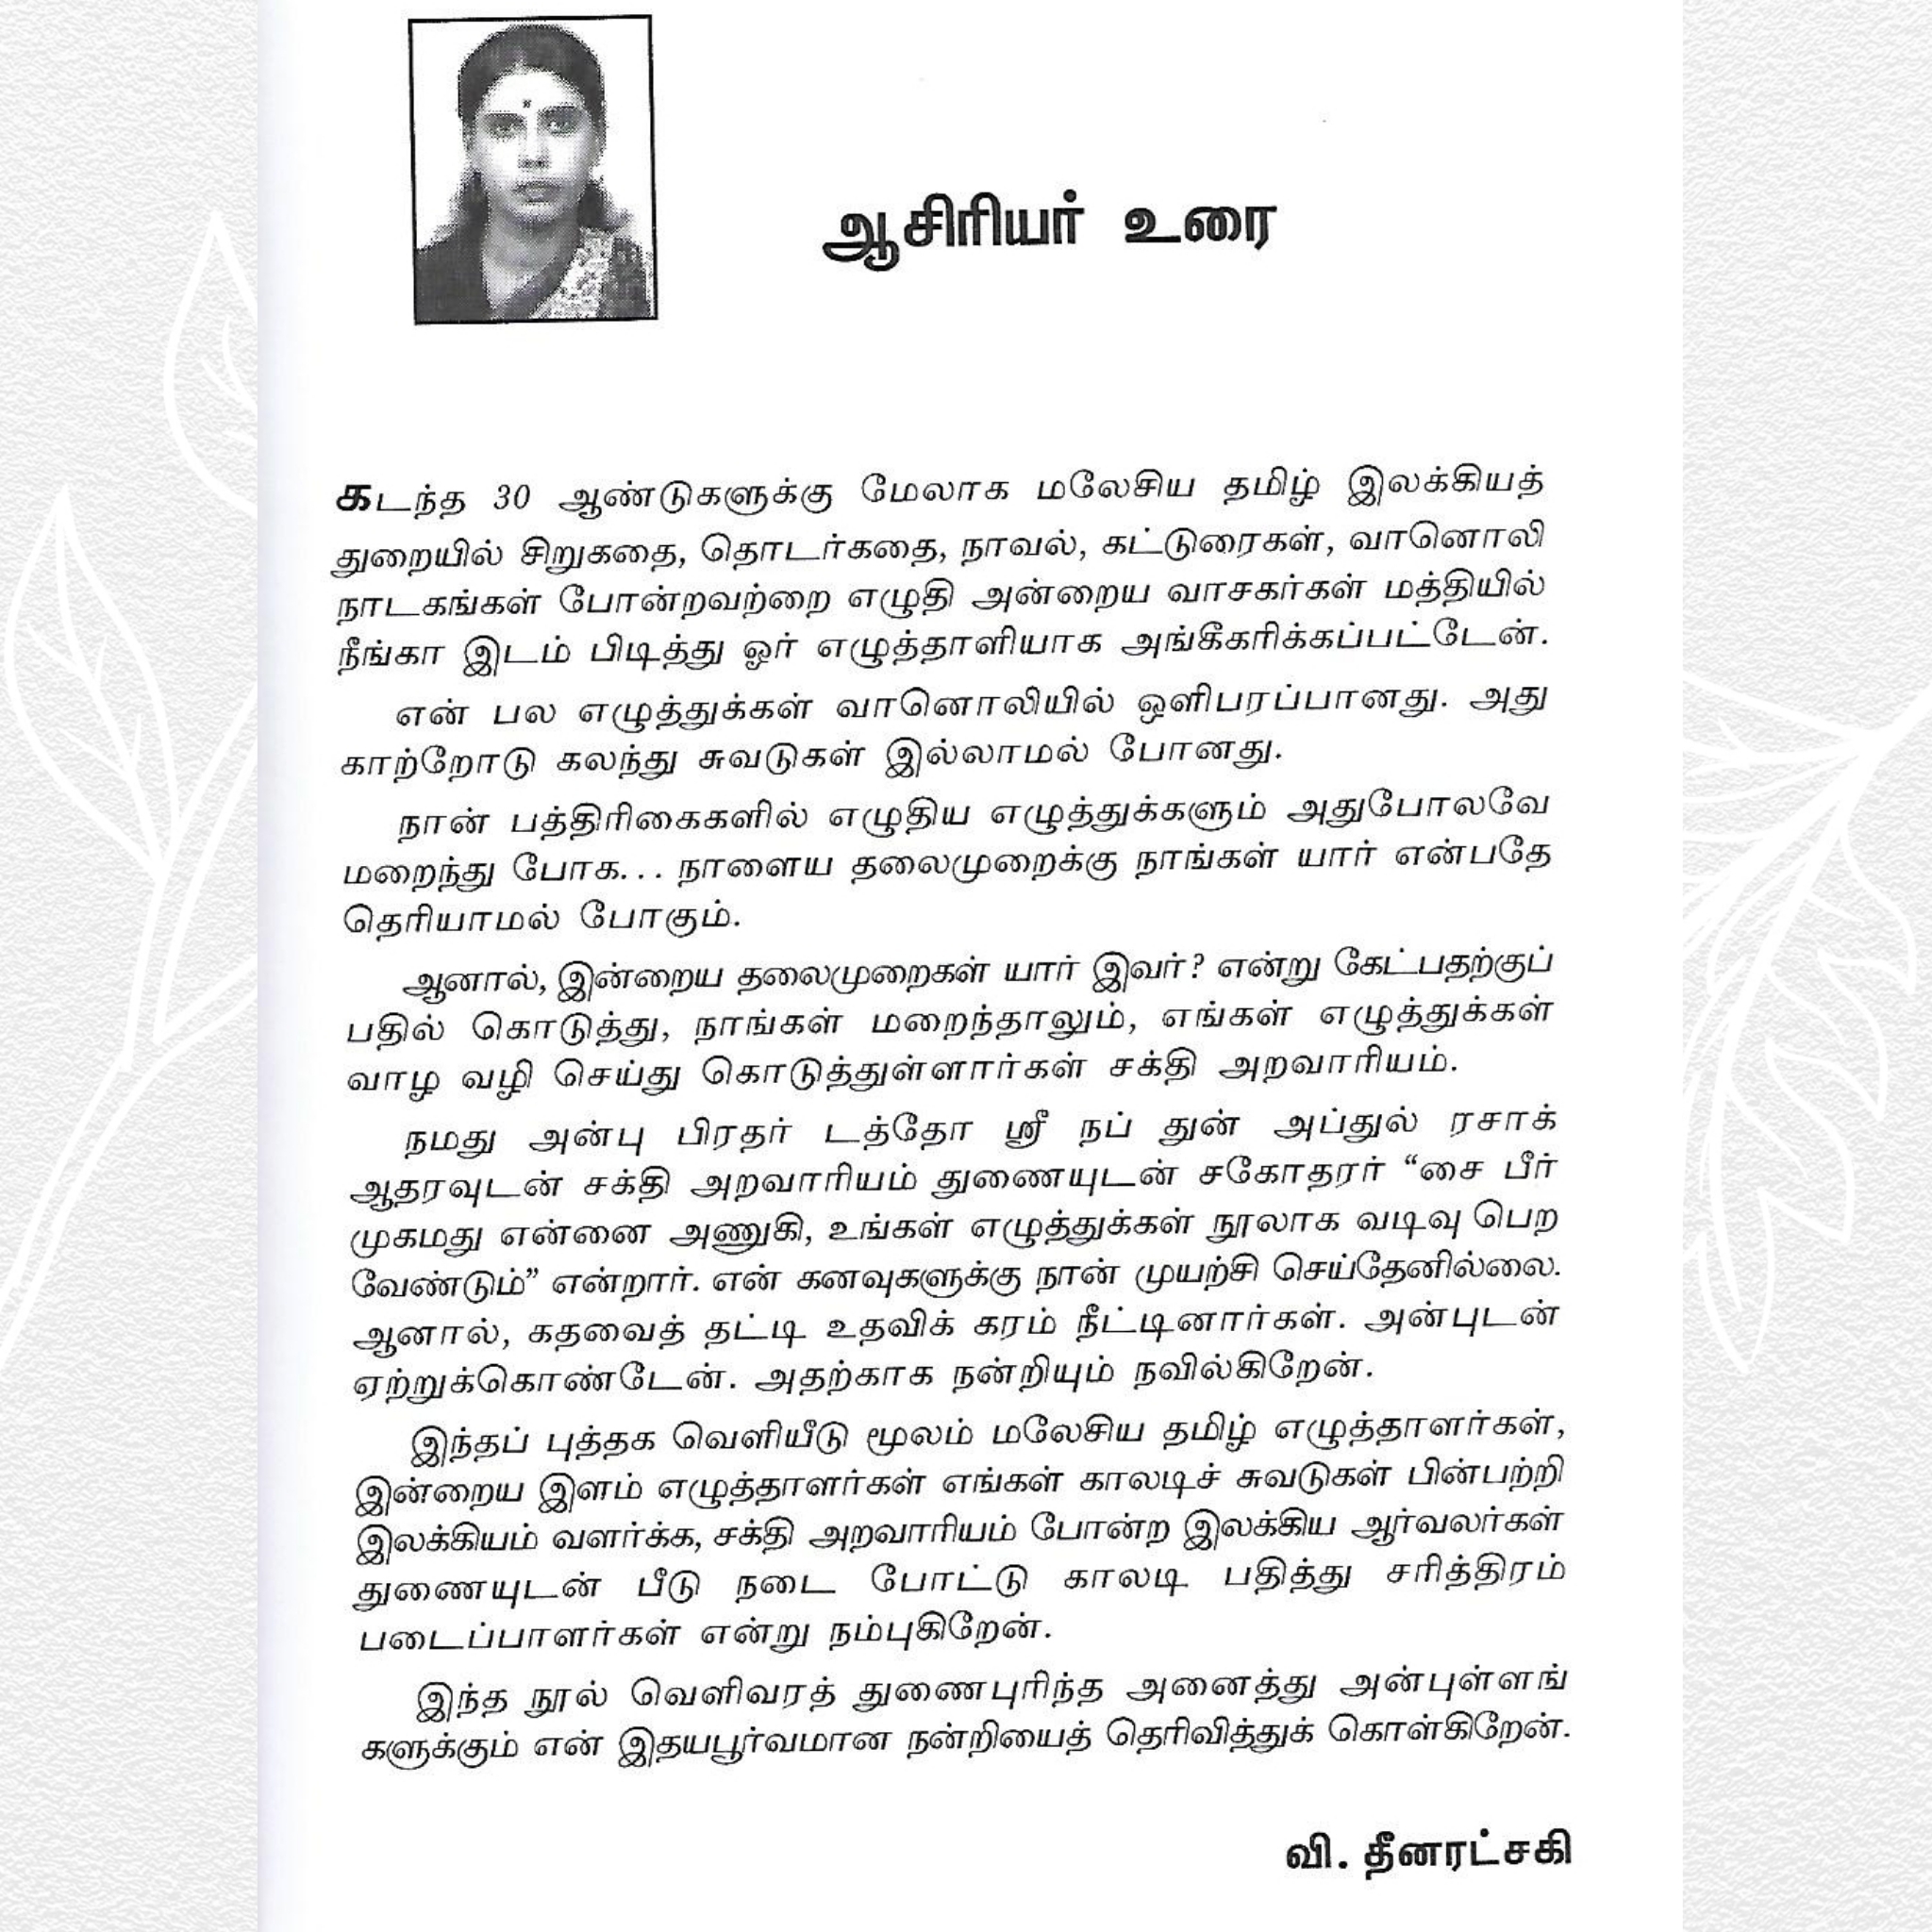 ஆசிரியர் உரை
கடந்த 30 ஆண்டுகளுக்கு மேலாக மலேசிய தமிழ் இலக்கியத்
துறையில் சிறுகதை, தொடர்கதை, நாவல், கட்டுரைகள், வானொலி
நாடகங்கள் போன்றவற்றை எழுதி அன்றைய வாசகர்கள் மத்தியில்
நீங்கா இடம் பிடித்து ஓர் எழுத்தாளியாக அங்கீகரிக்கப்பட்டேன்.
என் பல எழுத்துக்கள் வானொலியில் ஒளிபரப்பானது. அது
காற்றோடு கலந்து சுவடுகள் இல்லாமல் போனது.
நான் பத்திரிகைகளில் எழுதிய எழுத்துக்களும் அதுபோலவே
மறைந்து போக... நாளைய தலைமுறைக்கு நாங்கள் யார் என்பதே
தெரியாமல் போகும்.
ஆனால், இன்றைய தலைமுறைகள் யார் இவர்? என்று கேட்பதற்குப்
பதில் கொடுத்து, நாங்கள் மறைந்தாலும், எங்கள் எழுத்துக்கள்
வாழ வழி செய்து கொடுத்துள்ளார்கள் சக்தி அறவாரியம்.
நமது அன்பு பிரதர் டத்தோ ஸ்ரீ நப் துன் அப்துல் ரசாக்
ஆதரவுடன் சக்தி அறவாரியம் துணையுடன் சகோதரர் “சை பீர்
முகமது என்னை அணுகி, உங்கள் எழுத்துக்கள் நூலாக வடிவு பெற
வேண்டும்” என்றார். என் கனவுகளுக்கு நான் முயற்சி செய்தேனில்லை.
ஆனால், கதவைத் தட்டி உதவிக் கரம் நீட்டினார்கள். அன்புடன்
ஏற்றுக்கொண்டேன். அதற்காக நன்றியும் நவில்கிறேன்.
இந்தப் புத்தக வெளியீடு மூலம் மலேசிய தமிழ் எழுத்தாளர்கள்,
இன்றைய இளம் எழுத்தாளர்கள் எங்கள் காலடிச் சுவடுகள் பின்பற்றி
இலக்கியம் வளர்க்க, சக்தி அறவாரியம் போன்ற இலக்கிய ஆர்வலர்கள்
துணையுடன் பீடு நடை போட்டு காலடி பதித்து சரித்திரம்
படைப்பாளர்கள் என்று நம்புகிறேன்.
இந்த நூல் வெளிவரத் துணைபுரிந்த அனைத்து அன்புள்ளங்
களுக்கும் என் இதயபூர்வமான நன்றியைத் தெரிவித்துக் கொள்கிறேன்.
வி. தீனரட்சகி